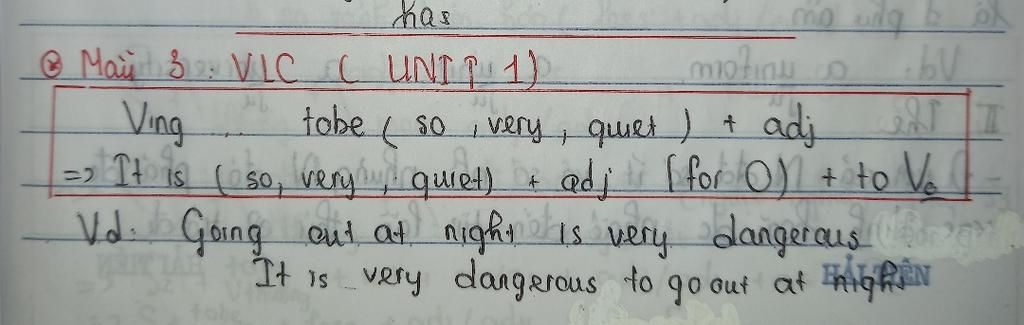 has
⊛ Mẫu 3 : VLC ( UNIT 1)
Ving ... tobe ( so , very , quiet ) + adj
=> It is ( so, very , quiet) + adj (for O) + to Vo
Vd: Going out at night is very dangerous
It is very dangerous to go out at night
HẢI TIẾN